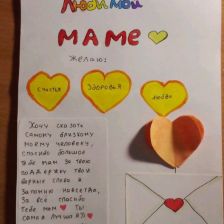 Любимой
МАМЕ
Желаю:
СЧАСТЬЯ
ЗДОРОВЬЯ
Любви
Хочу сказать
самому близкому
моему человеку,
спасибо большое
тебе мам за твою
поддержку твои
верные слова я
запомню навсегда,
За всё спасибо
Тебе мам Ты
самая лучшая